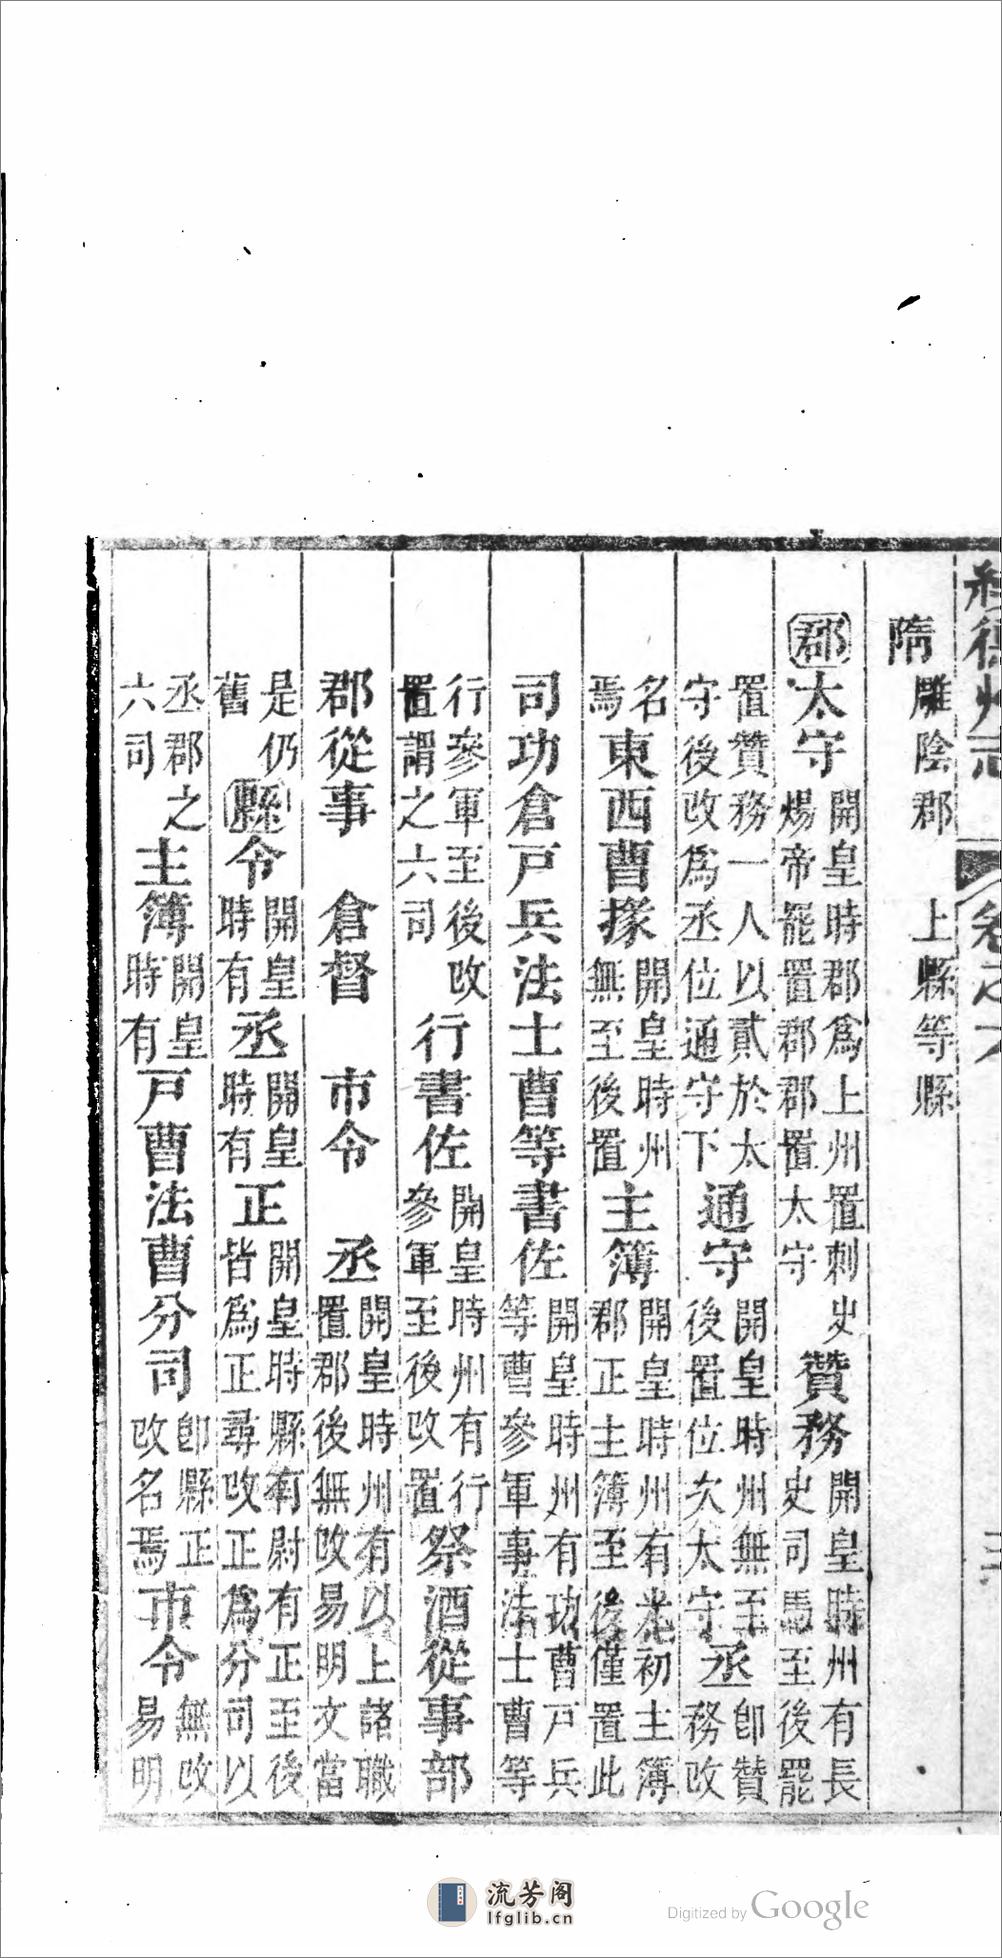 綏德州志 卷之六 三
隋 雕陰郡 上縣等縣
郡太守 開皇時郡爲上州置刺史煬帝罷置郡郡置太守 贊務 開皇時州有長史司馬至後罷
置贊務一人以貳於太守後改爲丞位通守下 通守 開皇時州無至後置位次太守 丞 即贊務改
名焉 東西曹掾 開皇時州無至後置 主簿 開皇時州有光初主簿郡正主簿至後僅置此
司功倉戸兵法士曹等書佐 開皇時州有功曹戸兵等曹參軍事法士曹等
行參軍至後改置謂之六司 行書佐 開皇時州有行參軍至後改置 祭酒從事部
郡從事 倉督 市令 丞 開皇時州有以上諸職置郡後無改易明文當
是仍舊 縣令 開皇時有 丞 開皇時有 正 開皇時縣有尉有正至後皆爲正尋改正爲分司以
丞郡之六司 主簿 開皇時有 戸曹法曹分司 即縣正改名焉 市令 無改易明
流芳阁
lfglib.cn
Digitized by Google